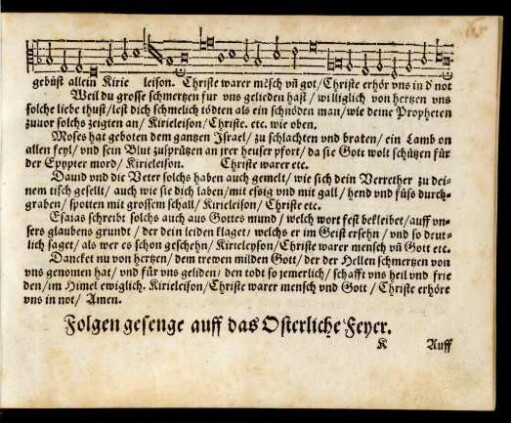 65
gebüst allein Kirie leison. Christe warer mẽsch vñ got/Christe erhör vns in d' not
Weil du grosse schmertzen fur vns gelieden hast / williglich von hertzen vns
solche liebe thust/lest dich schmelich tödten als ein schnöden man/wie deine Propheten
zuuor solchs zeigten an/ Kirieleison/ Christe. etc. wie oben.
Moses hat geboten dem gantzen Israel/ zu schlachten vnd braten/ ein Lamb on
allen feyl/ vnd sein Blut zusprützen an jrer heuser pfort/ da sie Gott wolt schützen für
der Egypter mord/ Kirieleison. Christe warer etc.
Dauid vnd die Veter solchs haben auch gemelt/ wie sich dein Verrether zu dei-
nem tisch gesellt/ auch wie sie dich laben/mit essig vnd mit gall/ hend vnd füss durch-
graben/ spotten mit grossem schall/ Kirieleison/ Christe etc.
Esaias schreibt solchs auch aus Gottes mund/ welch wort fest bekleibet/auff vn-
sers glaubens grundt/ der dein leiden klaget/ welchs er im Geist ersehn/ vnd so deut-
lich saget/ als wer es schon geschehn/ Kirieleyson/Christe warer mensch vñ Gott etc.
Dancket nu von hertzen/ dem trewen milden Gott/ der der Hellen schmertzen von
vns genomen hat/ vnd für vns geliden/ den todt so jemerlich/ schafft vns heil vnd frie
den/im Himel ewiglich. Kirieleison/Christe warer mensch vnd Gott/ Christe erhöre
vns in not/ Amen.
Folgen gesenge auff das Osterliche Feyer.
K Auff